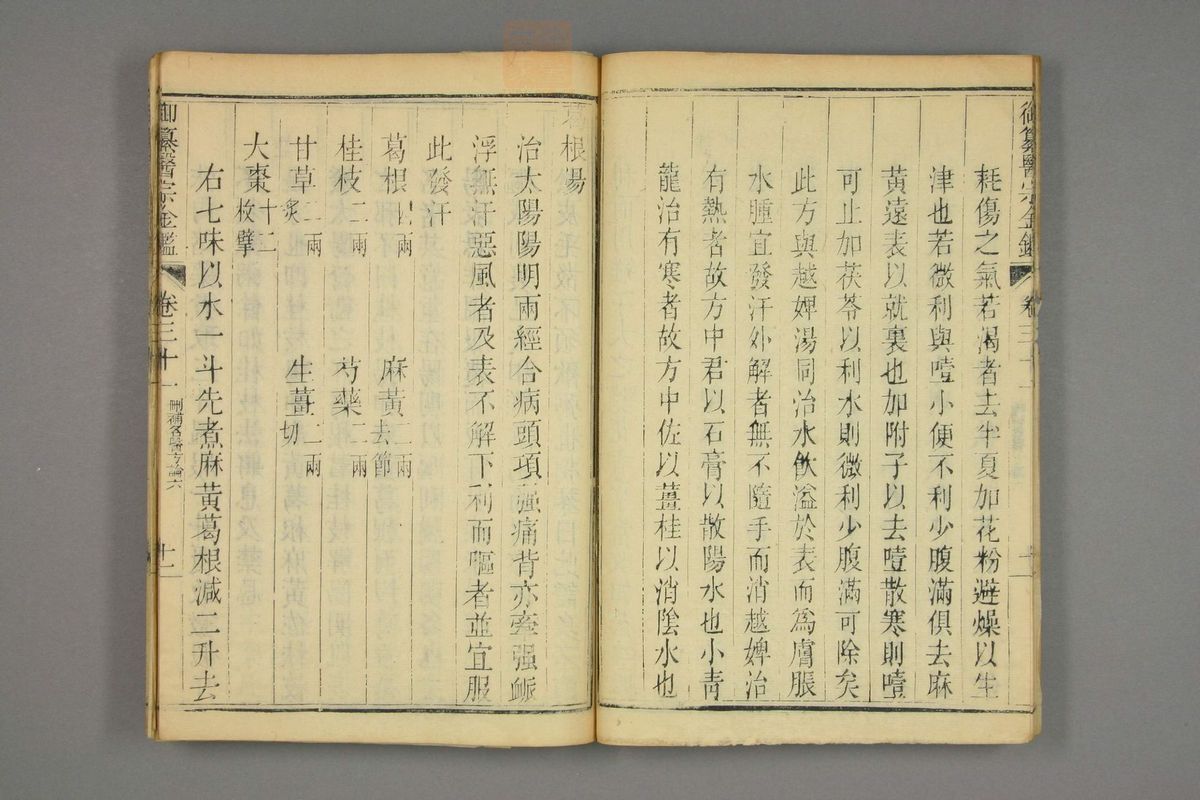 御纂醫宗金鑑 卷三十
耗傷之氣若渴者去半夏加花粉避燥以生
津也若微利與噎小便不利少腹滿俱去麻
黃遠表以就裏也加附子以去噎散寒則噎
可止加茯苓以利水則微利少腹滿可除矣
此方與越婢湯同治水飲溢於表而為膚脹
水腫宜發汗外解者無不隨手而消越婢治
有熱者故方中君以石膏以散陽水也小青
龍治有寒者故方中佐以薑桂以消陰水也
葛根湯
治太陽陽明兩經合病頭項强痛背亦牽强脈
浮無汗惡風者及表不解下利而嘔者並宜服
此發汗
葛根四兩 麻黃去節二兩
桂枝二兩 芍藥二兩
甘草炙二兩 生薑切二兩
大棗十二枚擘
右七味以水一斗先煮麻黃葛根減二升去
御纂醫宗金鑑 卷三十 刪補名醫方論六 十一